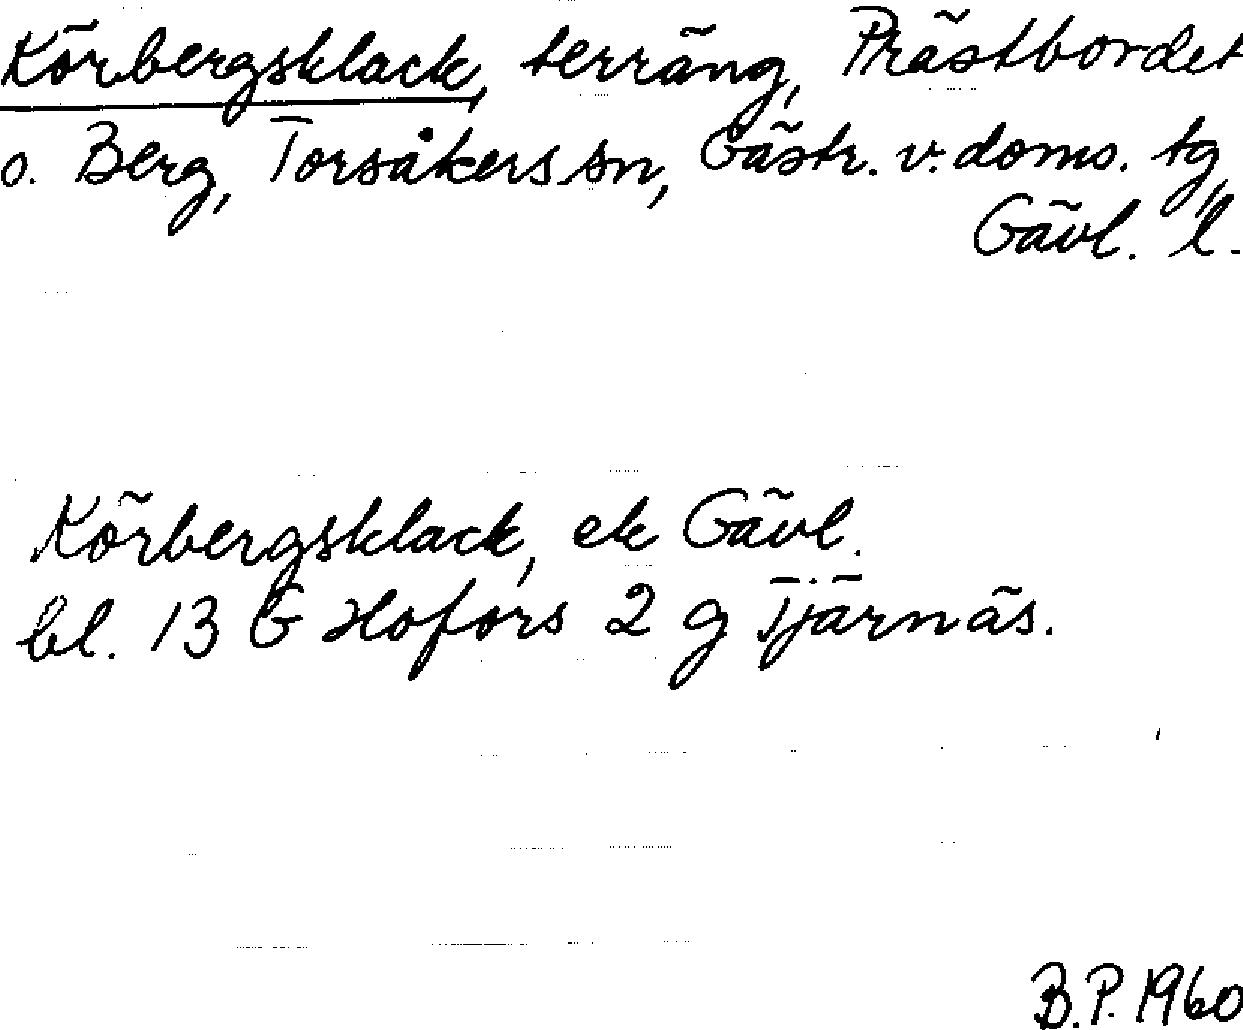 Körbergsklack, terräng, Prästbordet
o. Berg, Torsåkers sn, Gästr. v. doms. tg,
Gävl. l.
Körbergsklack, ek Gävl.
bl. 13 G Hofors 2 g Tjärnäs.
B.P. 1960